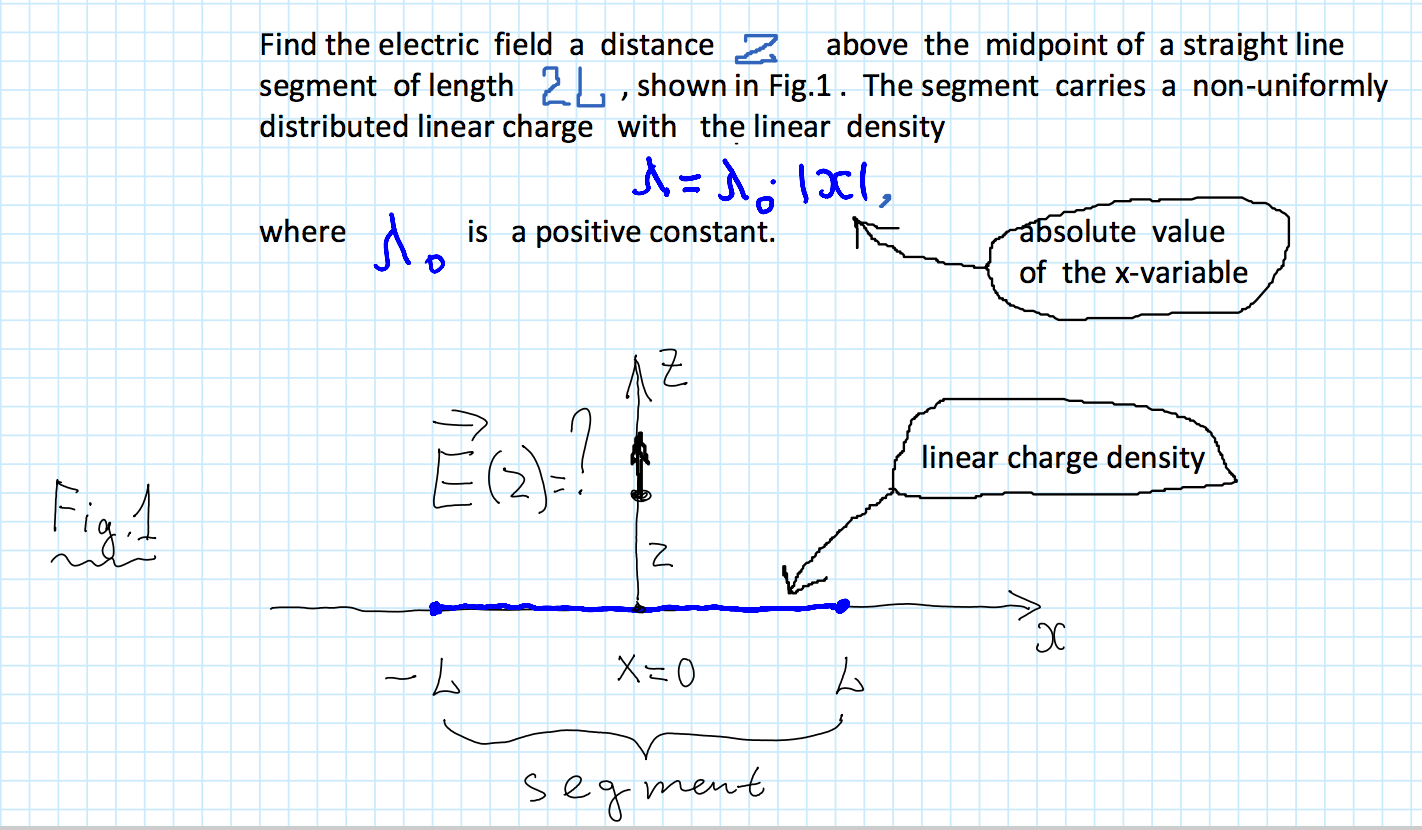 Find the electric field a distance Z above the midpoint of a straight line
segment of length 2L , shown in Fig.1 . The segment carries a non-uniformly
distributed linear charge with the linear density
λ = λ₀ · |x|,
where λ₀ is a positive constant.
absolute value
of the x-variable
Z
E⃗(z)=?
linear charge density
Fig.1
z
x
-L
x=0
L
segment